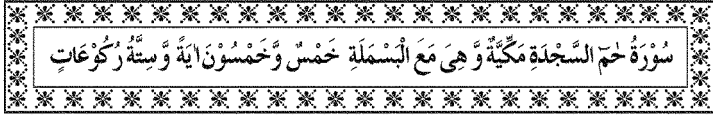 سُوْرَةُ حٰمٓ السَّجْدَةِ مَكِّيَّةٌ وَّ هِىَ مَعَ الْبَسْمَلَةِ خَمْسٌ وَّخَمْسُوْنَ اٰيَةً وَّ سِتَّةُ رُكُوْعَاتٍ